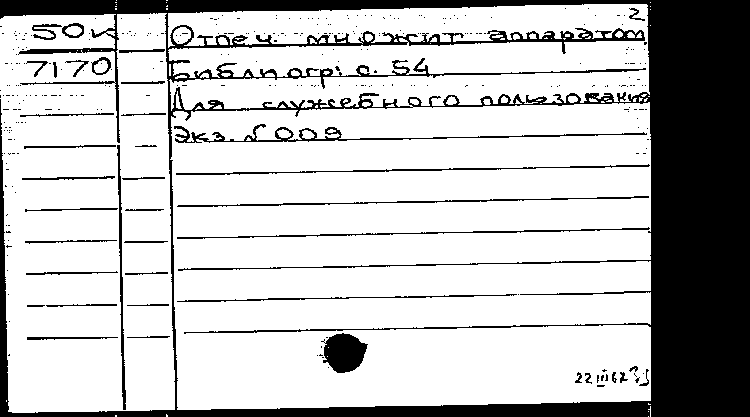 2
50к Отпеч. множит аппаратом
7170 Библиогр: с. 54
Для служебного пользования
Экз. № 009